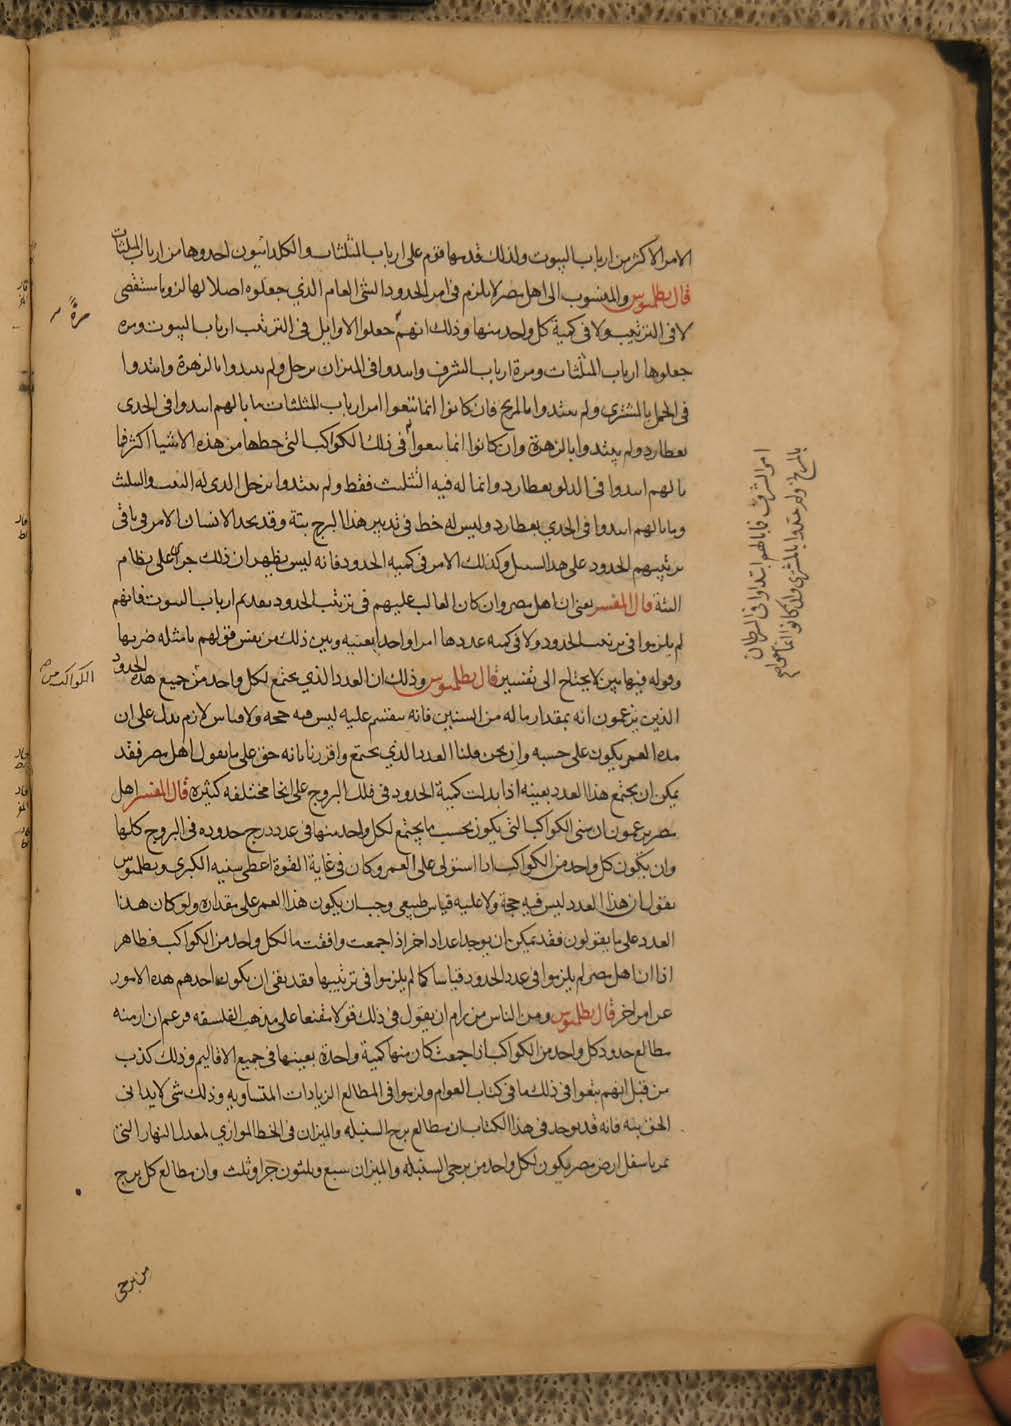 الامر الاكثر من ارباب البيوت ولذلك قدمها قوم على ارباب المثلثات والكلدانيون احدوها من ارباب المثلثات
قال بطلميوس والمنسوب الى اهل مصر لا يلزم في امر الحدود الشى العام الذي جعلوه اصلا لها لزوما مستقصى
لا في الترتيب ولا في كمية كل واحد منها وذلك انهم جعلوا الاوايل في الترتيب ارباب البيوت ومرة
جعلوها ارباب المثلثات ومرة ارباب الشرف وابتدوا في الميزان بزحل ولم يبتدوا بالزهرة وابتدوا
في الحمل بالمشترى ولم يبتدوا بالمريخ فان كانوا انما تتبعوا امر ارباب المثلثات ما بالهم ابتدوا في الجدى
بعطارد ولم يبتدوا بالزهرة وان كانوا انما تبعوا في ذلك الكواكب التي حظها من هذه الاشيا اكثر فما
بالهم ابتدوا في الدلو بعطارد وانما له فيه التثليث فقط ولم يبتدوا بزحل الذى له البيت والمثلث
وما بالهم ابتدوا في الجدي بعطارد وليس له حظ في تدبير هذا البرج بتة وقد يجد الانسان الامر في باقي
ترتيبهم الحدود على هذا السبيل وكذلك الامر في كمية الحدود فانه ليس يظهر ان ذلك جرى على نظام
البتة قال المفسر يعنى ان اهل مصر وان كان الغالب عليهم في ترتيب الحدود تقديم ارباب البيوت فانهم
لم يلزموا في ترتيب الحدود ولا في كمية عددها امرا واحدا بعينه وبين ذلك من نفس قولهم بامثله ضربها
وقوله فيها بين لا يحتاج الى تفسير قال بطلميوس وذلك ان العدد الذي يجتمع لكل واحد من جميع هذه الحدود
الكواكب من
الذين يزعمون انه بمقدار ما له من السنين فانه ينقسم عليه ليس فيه حجه ولا قياس لازم يدل على ان
مدة العمر يكون على حسبه وان نحن قلنا العدد الذي يجتمع واقررنا بانه حق على ما يقول اهل مصر فقد
يمكن ان يجتمع هذا العدد بعينه اذا بدلت كمية الحدود في فلك البروج على انحا مختلفه كثيرة قال المفسر اهل
مصر يزعمون ان سنى الكواكب التي يكون بحسب ما يجتمع لكل واحد منها في عدد درج حدوده في البروج كلها
وان يكون كل واحد من الكواكب اذا استولى على العمر وكان في غاية القوة اعطى سنيه الكبرى وبطلميوس
يقول ان هذا العدد ليس فيه حجة ولا عليه قياس طبيعي وجب ان يكون هذا العمر على مقداره ولو كان هذا
العدد على ما يقولون فقد يمكن ان يوجد اعداد اخر اذا جمعت وافقت ما لكل واحد من الكواكب فظاهر
اذا ان اهل مصر لم يلزموا في عدد الحدود قياسا كما لم يلزموا في ترتيبها فقد بقى ان يكون اخدهم هذه الامور
عن امر اخر قال بطلميوس ومن الناس من رام ان يقول في ذلك قولا مقنعا على مذهب الفلسفه فزعم ان ازمنة
مطالع حدود كل واحد من الكواكب اذا جمعت كان منها كمية واحدة بعينها في جميع الاقاليم وذلك كذب
من قبل انهم تبعوا في ذلك ما في كتاب العوام ولزموا في المطالع الزيادات المتساويه وذلك شى لا يدانى
الحق بتة فانه قد يوجد في هذا الكتاب ان مطالع برج السنبله والميزان في الخط الموازي لمعدل النهار التي
تمر باسفل ارض مصر يكون لكل واحد من برجى السنبله والميزان سبع وثلثون جزا وثلث وان مطالع كل برج
من برجى
مرة
امر الشرف فما بالهم ابتدوا في السرطان
بالمريخ ولم يبتدوا بالمشترى وان كانوا انما